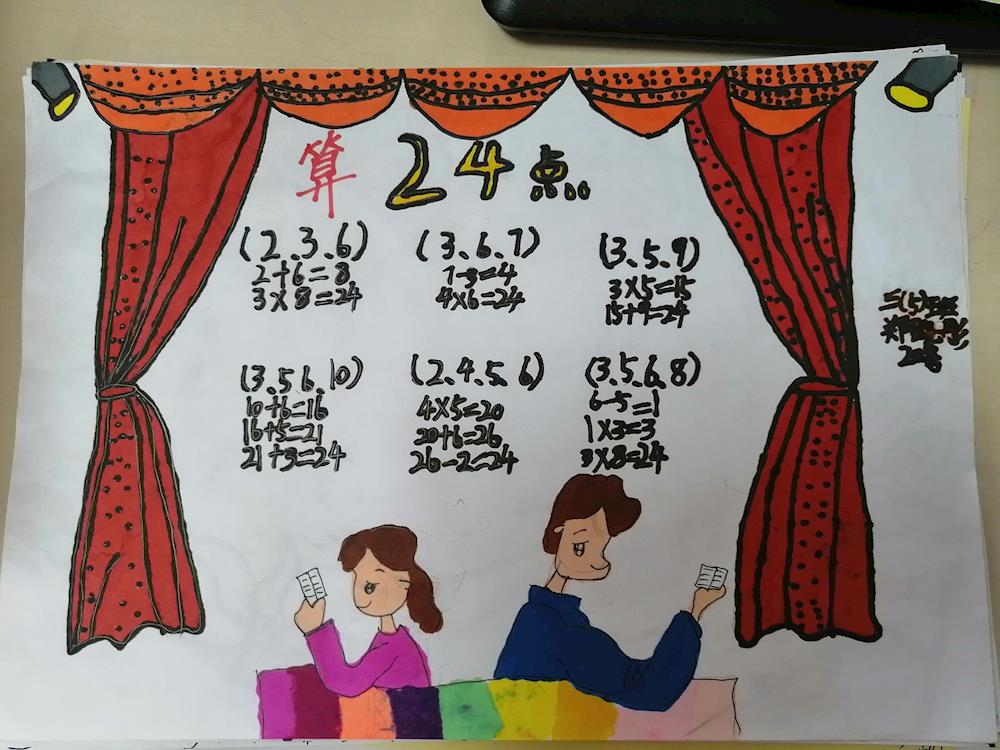 算24点
(2、3、6)
2+6=8
3×8=24
(3、6、7)
7-3=4
4×6=24
(3、5、9)
3×5=15
15+9=24
(3、5、6、10)
10+6=16
16+5=21
21+3=24
(2、4、5、6)
4×5=20
20+6=26
26-2=24
(3、5、6、8)
6-5=1
1×3=3
3×8=24
二(5)班